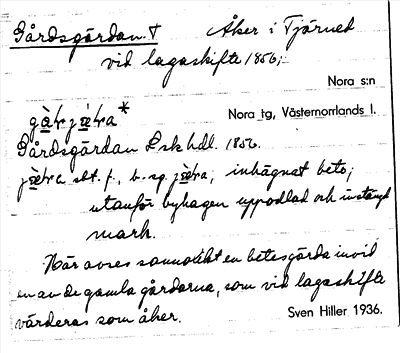 Gårdsgärdan † Åker i Tjärned
vid lagaskifte 1856;
Nora s:n
Nora tg, Västernorrlands l.
Gårdsgärdan Lsk hdl. 1856.
sbt. f., b. sg. inhägnat bete;
utanför byhagen uppodlad och instängd
mark.
Här avses sannolikt en betesgärda invid
en av de gamla gårdarna, som vid lagaskifte
värderas som åker.
Sven Hiller 1936.